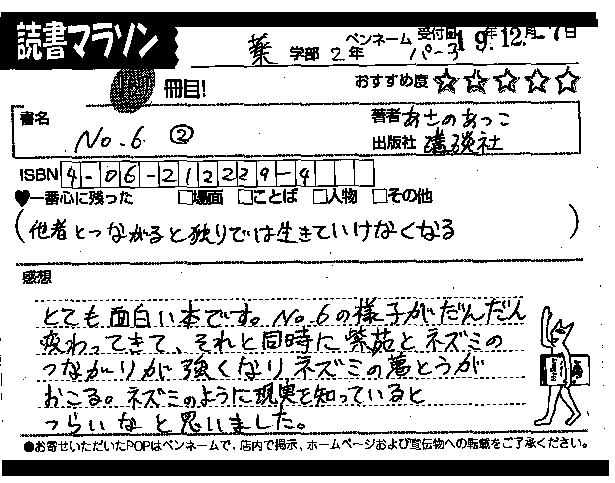 読書マラソン
薬 学部 2年 ペンネーム パー子 受付日 19年12月-7日
冊目!
おすすめ度 ☆☆☆☆☆
書名 No.6 ②
著者 あさのあつこ
出版社 講談社
ISBN 4-06-212229-4
♥一番心に残った □場面 □ことば □人物 □その他
(他者とつながると独りでは生きていけなくなる)
感想
とても面白い本です。No.6の様子がだんだん
変わってきて、それと同時に紫苑とネズミの
つながりが強くなりネズミの葛とうが
おこる。ネズミのように現実を知っていると
つらいなと思いました。
●お寄せいただいたPOPはペンネームで、店内で掲示、ホームページおよび宣伝物への転載をご了承ください。